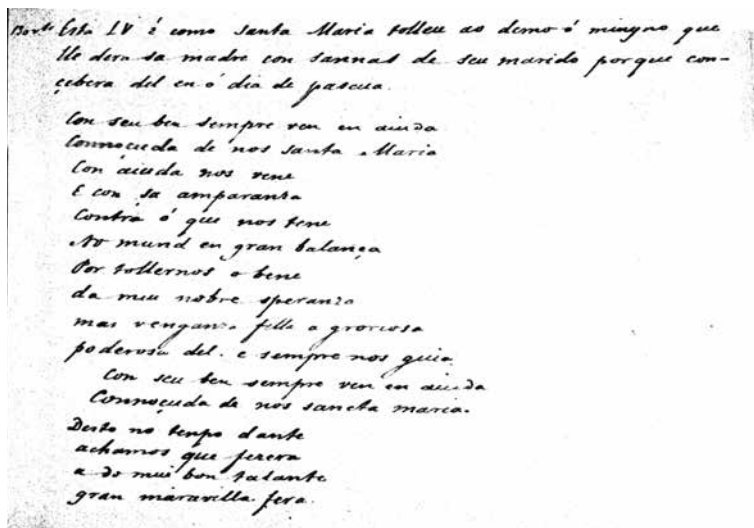 Esta IV é como Santa Maria tolleu ao demo ó minyno que
lle dera sa madre con sannas de seu marido porque con-
çebera del en ó dia de pascua.
Con seu ben sempre ven en aiuda
Connoçuda de nos Santa Maria
Con aiuda nos vene
E con sa amparanza
Contra ó que nos tene
No mund en gran balança
Por tollernos o bene
da mui nobre speranza
mas venganza filla a groriosa
poderosa del. e sempre nos guia
Con seu ben sempre ven en aiuda
Connoçuda de nos sancta maria.
Desto no tenpo dante
achamos que fezera
a do mui bon talante
gran maravilla fera.